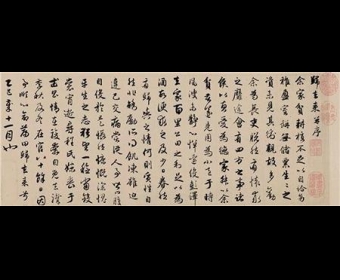 歸去來兮序
余家貧耕植不足以自給幼
稚盈室缾無儲粟生生之
資未見其術親故多勸
余為長吏脫然有懷求
之靡途會有四方之事諸
侯以惠愛為德家叔以余
貧苦遂見用為小邑于時
風波未靜心憚遠役彭澤
去家百里公田之利足以為
酒故便求之及少日眷然
有歸歟之情何則質性自
然非矯勵所得飢凍雖迫
違己交病嘗從人事皆口腹
自役於是悵然慷慨深愧
平生之志猶望一稔當斂
裳宵逝尋程氏妹喪于
武昌情在駿奔自免去職
仲秋至冬在官八十餘日因事
順心命篇曰歸去來兮
乙巳歲十一月也